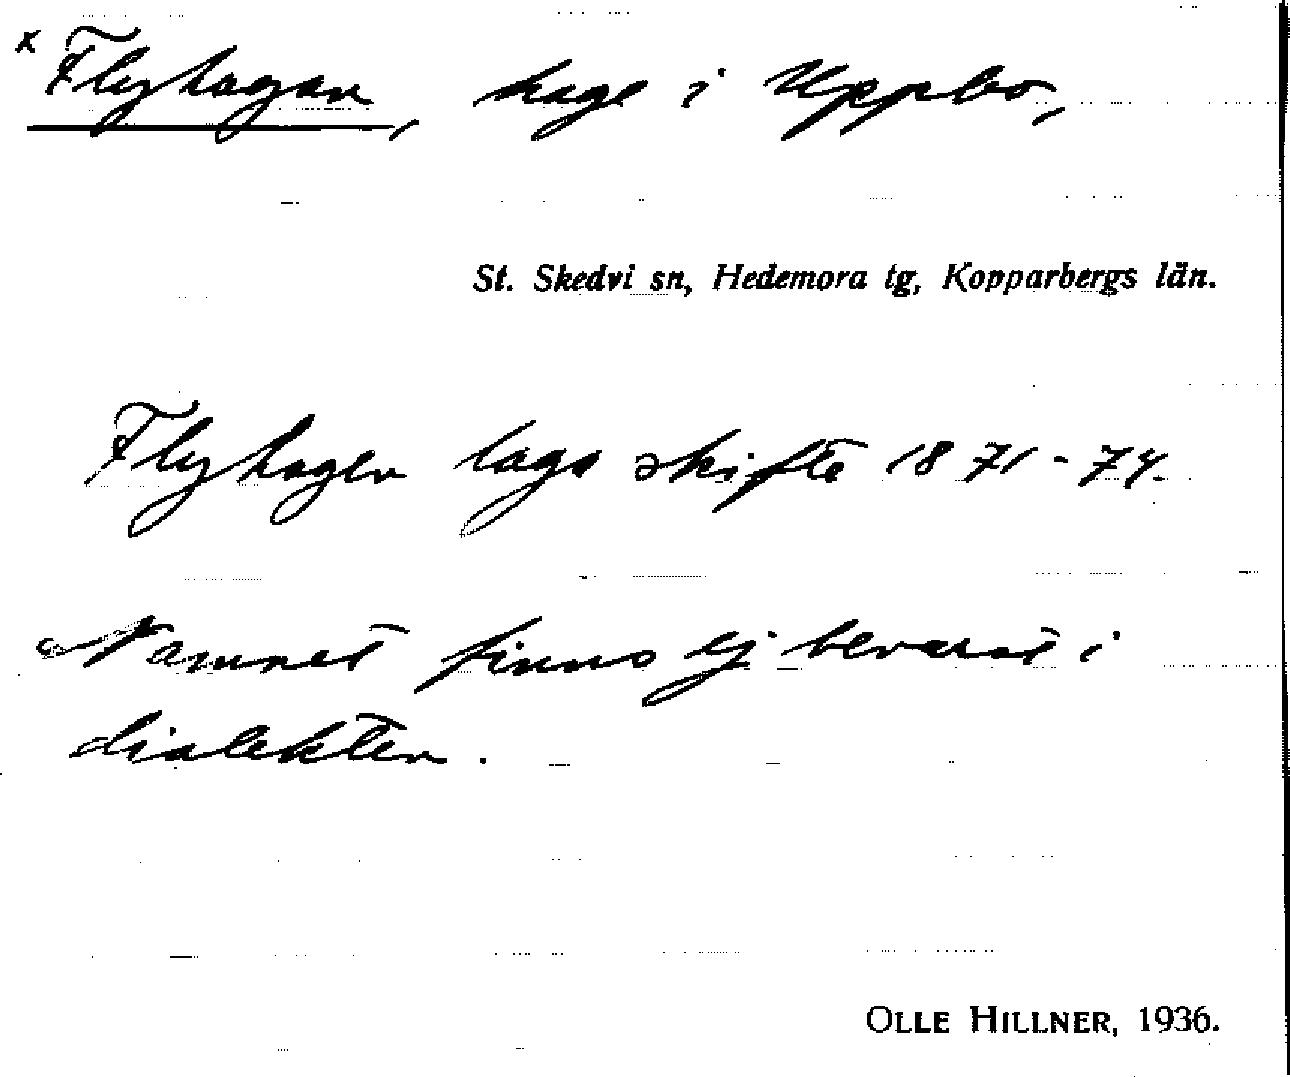 x Flyhagan, hage i Uppbo,
St. Skedvi sn, Hedemora tg, Kopparbergs län.
Flyhagen laga skifte 1871-74.
Namnet finns ej bevarat i
dialekten.
OLLE HILLNER, 1936.